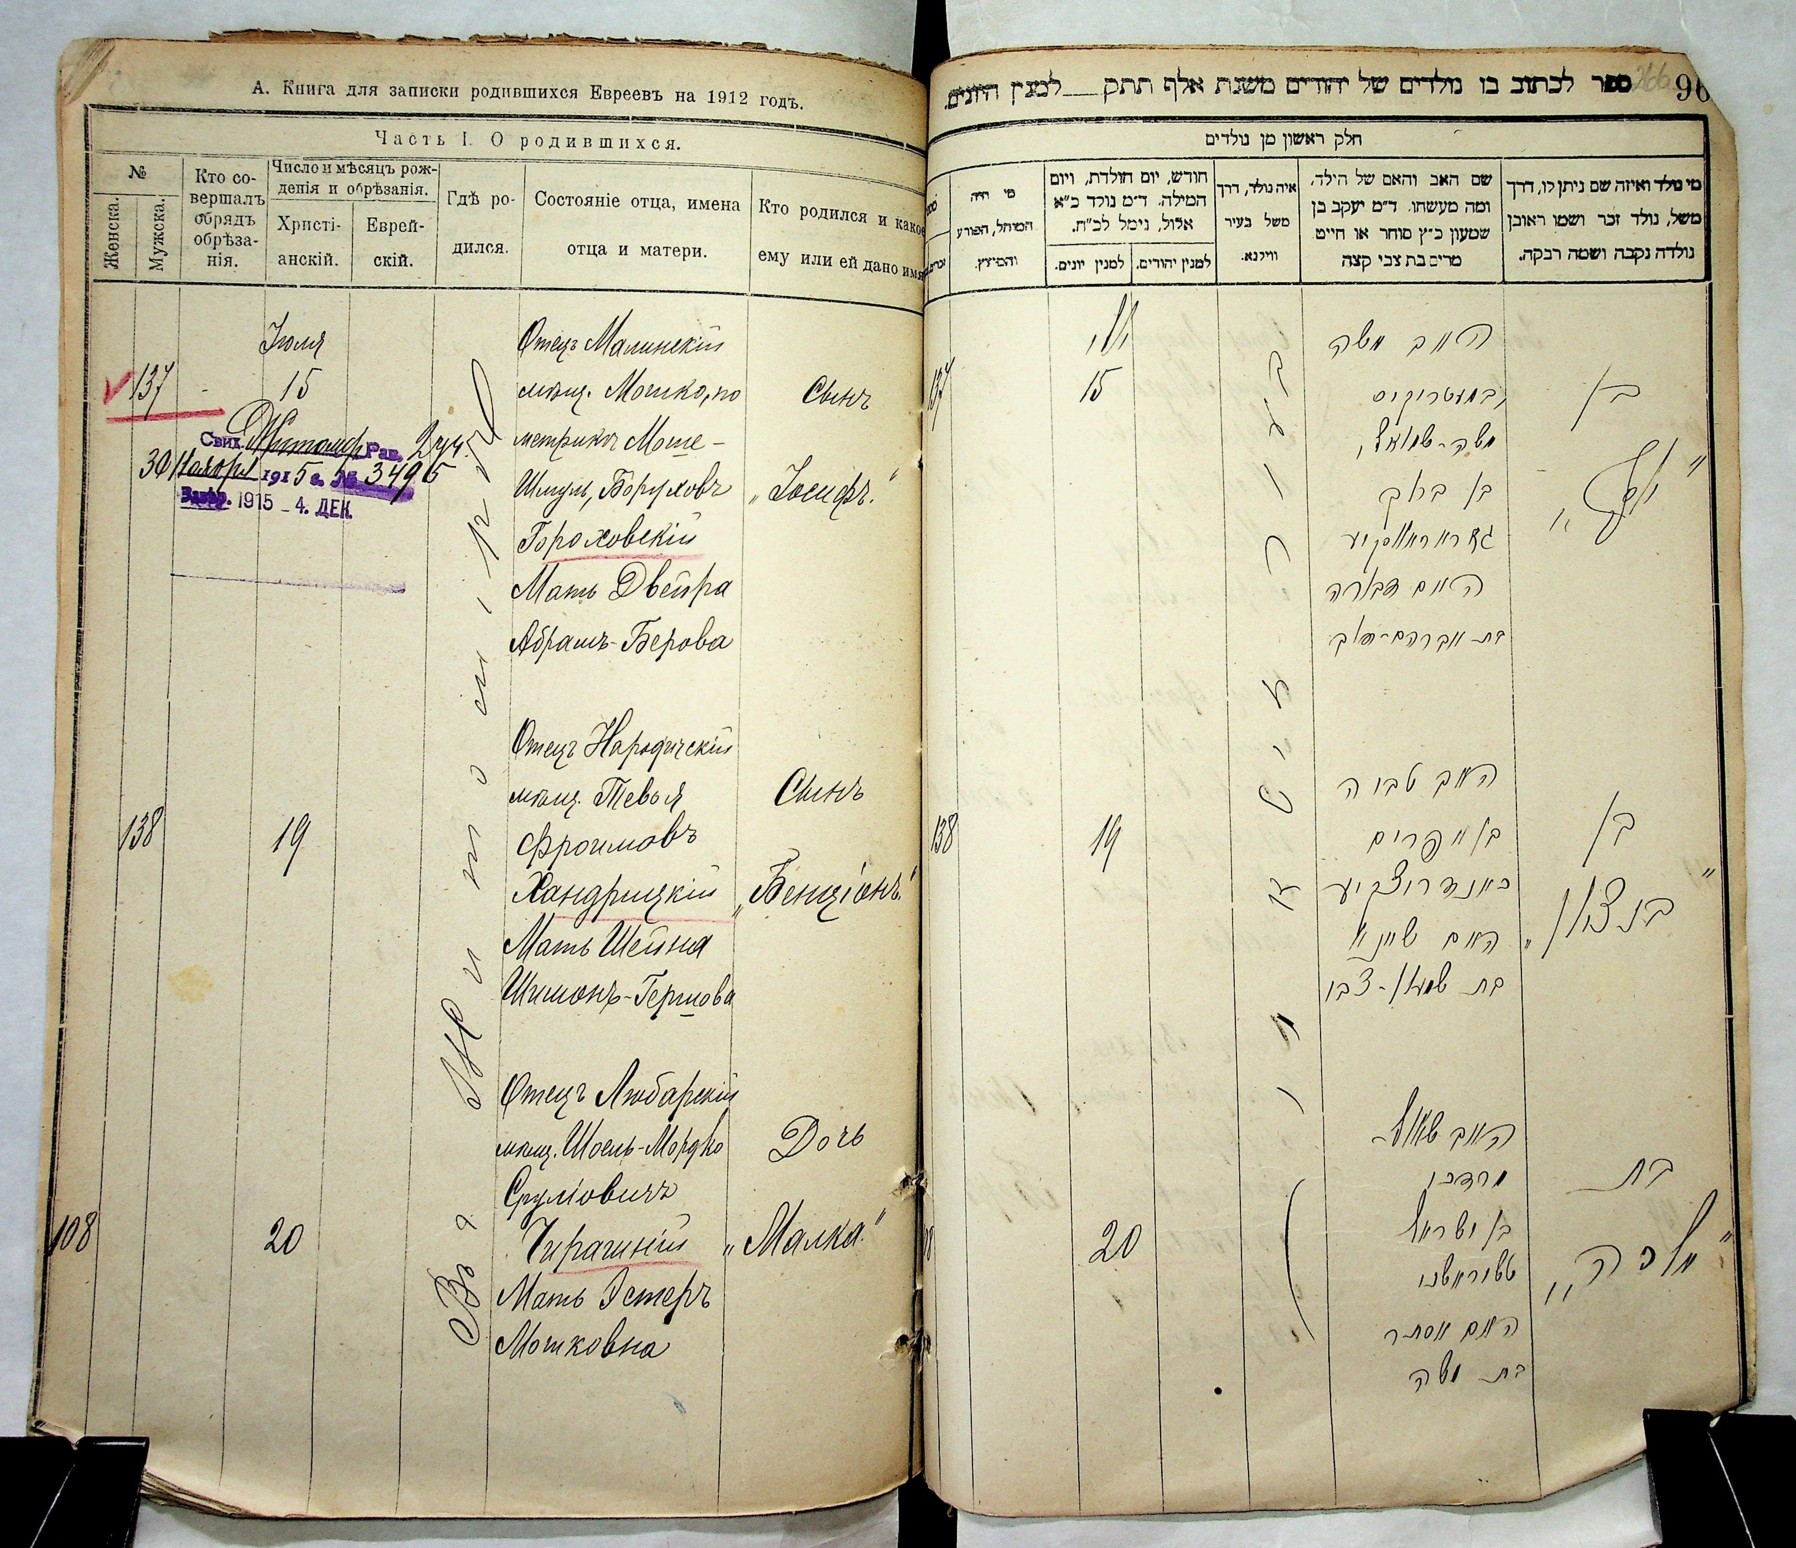 А. Книга для записки родившихся Евреевъ на 1912 годъ.
Часть I. О родившихся.
№
Женска.
Мужска.
Кто совершалъ обрядъ обрѣзанія.
Число и мѣсяцъ рожденія и обрѣзанія.
Христіанскій.
Еврейскій.
Гдѣ родился.
Состояніе отца, имена отца и матери.
Кто родился и какое ему или ей дано имя
Въ г. Житомірѣ
Іюля
137
15
Отецъ Малинскій
мѣщ. Мошко, по
метрикѣ Моше-
Шмуль, Боруховъ
Гороховскій
Мать Двейра
Абрамъ-Берова
Сынъ
„Іосифъ."
Свид. Житомір. Рав.
30 Ноября 1915 г. № 3496
1915 - 4. ДЕК.
138
19
Отецъ Народическій
мѣщ. Тевья
Фроимовъ
Хандрицкій
Мать Шейна
Шимонъ-Гершова
Сынъ
„Бенціонъ."
108
20
Отецъ Любарскій
мѣщ. Шоель-Мордко
Сруліовичъ
Чирашній
Мать Эстеръ
Мошковна
Дочь
„Малка."
ספר לכתוב בו נולדים של יהודים משנת אלף תתק___למנין היונים.
266
96
חלק ראשון מן נולדים
מי נולד ואיזה שם ניתן לו, דרך
משל, נולד זכר ושמו ראובן
נולדה נקבה ושמה רבקה.
שם האב והאם של הילד,
ומה מעשהו. ד״מ יעקב בן
שמעון כ״ץ סוחר או חייט
מרים בת צבי קצה
איה נולד, דרך
משל בעיר
ווילנא.
חודש, יום הולדת, ויום
המילה. ד״מ נולד כ״א
אלול, נימל לכ״ח.
למנין יהודים.
למנין יונים.
מי היה
המוהל, הפורע
והמוצץ.
יולי
137
15
האב משה
במעטריקיס
משה-שמואל,
בן ברוך
האם דבורה
בת אברהם-דוב
בן
„יוסף"
138
19
האב טביה
בן אפרים
כאנדריצקיע
האם שיינא
בת שמעון-צבי
בן
„בנציון"
20
האב שאול-
מרדכי
בן ישראל
טשיראשני
האם אסתר
בת משה
בת
„מלכה"
בעיר זיטאמיר